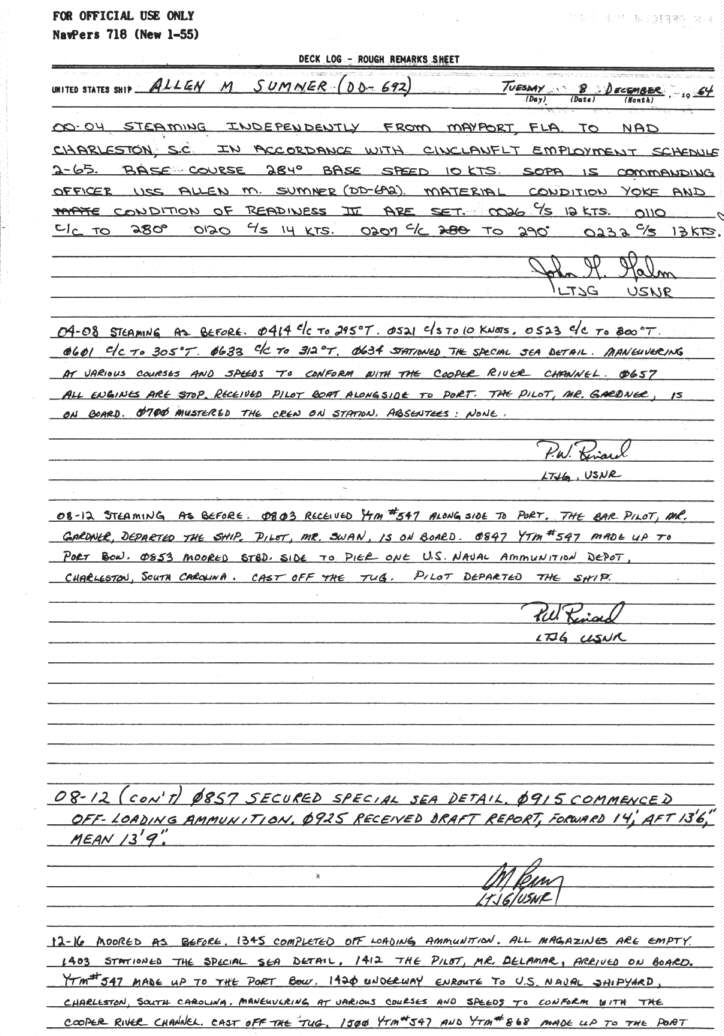 FOR OFFICIAL USE ONLY
NavPers 718 (New 1-55)
DECK LOG - ROUGH REMARKS SHEET
UNITED STATES SHIP ALLEN M SUMNER (DD-692) TUESDAY 8 DECEMBER, 1964
(Day) (Date) (Month)
00-04 STEAMING INDEPENDENTLY FROM MAYPORT, FLA. TO NAD
CHARLESTON, S.C. IN ACCORDANCE WITH CINCLANFLT EMPLOYMENT SCHEDULE
2-65. BASE COURSE 284° BASE SPEED 10 KTS. SOPA IS COMMANDING
OFFICER USS ALLEN M. SUMNER (DD-692). MATERIAL CONDITION YOKE AND
CONDITION OF READINESS III ARE SET. 0026 C/S 12 KTS. 0110
C/C TO 280° 0120 C/S 14 KTS. 0207 C/C 280 TO 290° 0232 C/S 13 KTS.
John H. Halm
LTJG USNR
04-08 STEAMING AS BEFORE. Ø414 C/C TO 295°T. Ø521 C/S TO 10 KNOTS. 0523 C/C TO 300°T.
Ø601 C/C TO 305°T. Ø633 C/C TO 312°T. Ø634 STATIONED THE SPECIAL SEA DETAIL. MANEUVERING
AT VARIOUS COURSES AND SPEEDS TO CONFORM WITH THE COOPER RIVER CHANNEL. Ø657
ALL ENGINES ARE STOP. RECEIVED PILOT BOAT ALONGSIDE TO PORT. THE PILOT, MR. GARDNER, IS
ON BOARD. Ø7ØØ MUSTERED THE CREW ON STATION. ABSENTEES: NONE.
P.W. Rinard
LTJG, USNR
08-12 STEAMING AS BEFORE. Ø8Ø3 RECEIVED YTM #547 ALONG SIDE TO PORT. THE BAR PILOT, MR.
GARDNER, DEPARTED THE SHIP. PILOT, MR. SWAN, IS ON BOARD. Ø847 YTM #547 MADE UP TO
PORT BOW. Ø853 MOORED STBD. SIDE TO PIER ONE U.S. NAVAL AMMUNITION DEPOT,
CHARLESTON, SOUTH CAROLINA. CAST OFF THE TUG. PILOT DEPARTED THE SHIP.
PW Rinard
LTJG USNR
08-12 (CON'T) Ø857 SECURED SPECIAL SEA DETAIL. Ø915 COMMENCED
OFF-LOADING AMMUNITION. Ø925 RECEIVED DRAFT REPORT, FORWARD 14', AFT 13'6",
MEAN 13'9".
LTJG/USNR
12-16 MOORED AS BEFORE. 1345 COMPLETED OFF LOADING AMMUNITION. ALL MAGAZINES ARE EMPTY.
14Ø3 STATIONED THE SPECIAL SEA DETAIL. 1412 THE PILOT, MR. DELAMAR, ARRIVED ON BOARD.
YTM #547 MADE UP TO THE PORT BOW. 142Ø UNDERWAY ENROUTE TO U.S. NAVAL SHIPYARD,
CHARLESTON, SOUTH CAROLINA. MANEUVERING AT VARIOUS COURSES AND SPEEDS TO CONFORM WITH THE
COOPER RIVER CHANNEL. CAST OFF THE TUG. 15ØØ YTM #547 AND YTM #868 MADE UP TO THE PORT